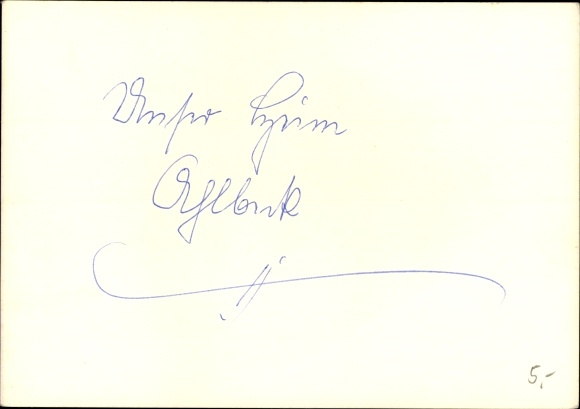 Unser Heim
Ahlbeck
5,-